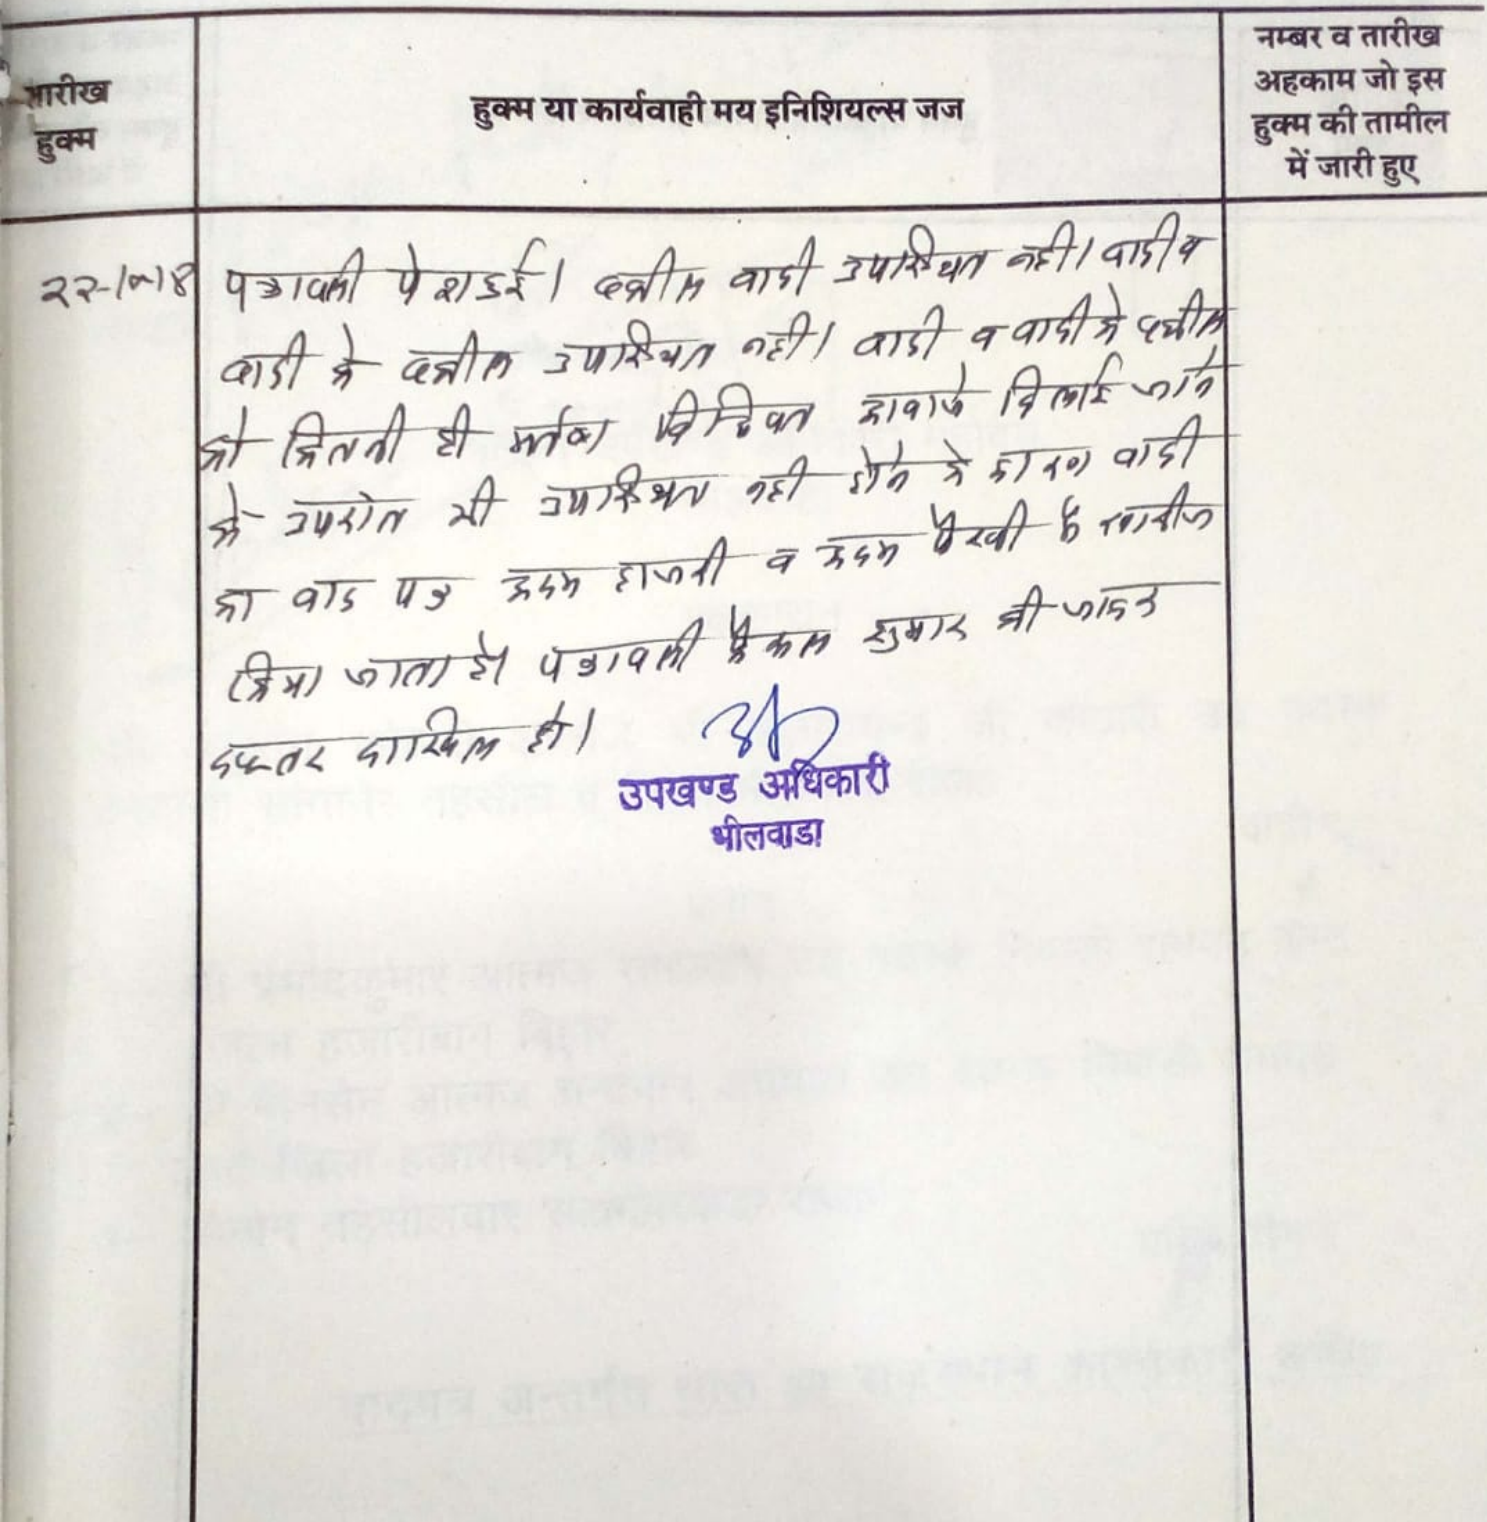 तारीख
हुक्म
हुक्म या कार्यवाही मय इनिशियल्स जज
नम्बर व तारीख
अहकाम जो इस
हुक्म की तामील
में जारी हुए
पत्रावली पेश हुई। वकील वादी उपस्थित नही। वादी व
वादी के वकील उपस्थित नही। वादी व वादी के वकील
को कितनी ही मर्तबा विधिवत आवाजे दिलाई जाने
के उपरांत भी उपस्थित नही होने के कारण वादी
का वाद पत्र अदम हाजरी व अदम पैरवी में खारीज
किया जाता है। पत्रावली फैसल शुमार की जाकर
दफ्तर दाखिल हो।
उपखण्ड अधिकारी
भीलवाडा